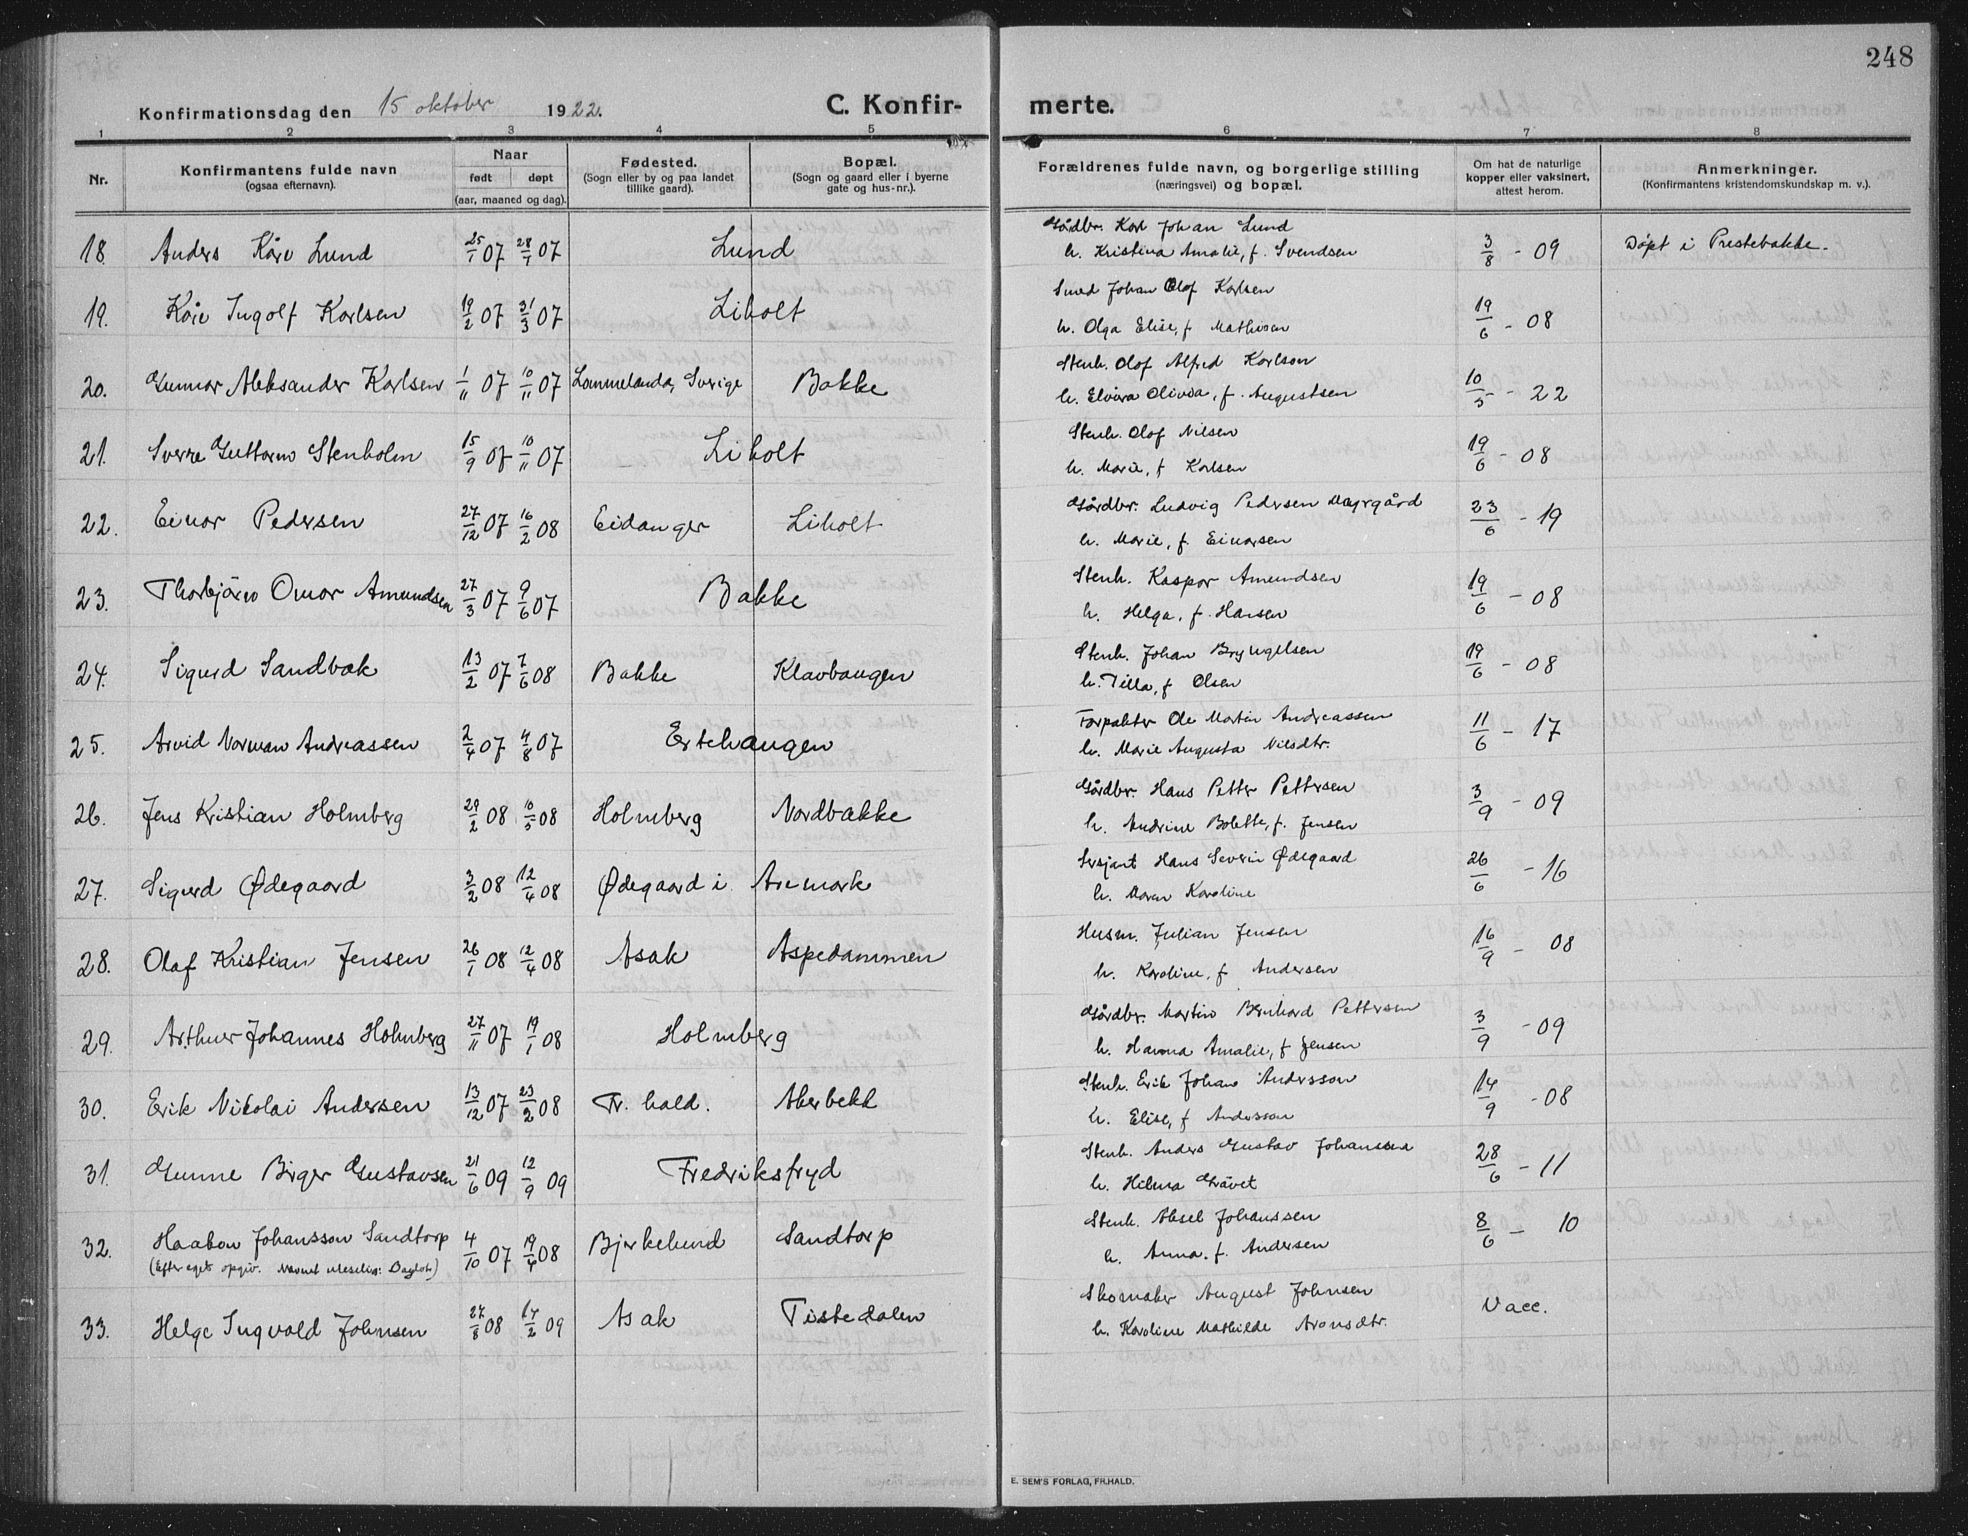 248
Konfirmationsdag den 15 oktober 1922.
C. Konfirmerte.
1 2 3 4 5 6 7 8
Nr.
Konfirmantens fulde navn
(ogsaa efternavn).
Naar
født døpt
(aar, maaned og dag).
Fødested.
(Sogn eller by og paa landet
tillike gaard).
Bopæl.
(Sogn og gaard eller i byerne
gate og hus-nr.).
Forældrenes fulde navn, og borgerlige stilling
(næringsvei) og bopæl.
Om hat de naturlige
kopper eller vaksinert,
attest herom.
Anmerkninger.
(Konfirmantens kristendomskundskap m. v.).
18. Anders Kåre Lund 25/1 07 28/1 07 Lund Gårdbr. Karl Johan Lund 3/8 - 09 Døpt i Prestebakke.
h. Kristina Amalie, f. Svendsen
19. Kåre Ingolf Karlsen 19/2 07 31/3 07 Liholt Smed Johan Olof Karlsen 19/6 - 08
h. Olga Elise, f Mathisen
20. Gunnar Aleksander Karlsen 1/11 07 10/11 07 Lommelanda, Sverige Bakke Stenh. Olof Alfred Karlson 10/5 - 22
h. Elvira Olivia, f. Augustsen
21. Sverre Guttorm Stenholm 15/9 07 10/11 07 Liholt Stenh. Olof Nilsen 19/6 - 08
h. Marie, f Karlsen
22. Einar Pedersen 27/12 07 16/2 08 Eidanger Liholt Gårdbr. Ludvig Pedersen 23/6 - 19
h. Marie, f. Einarsen
23. Thorbjörn Omar Amundsen 27/3 07 9/6 07 Bakke Stenh. Kaspar Amundsen 19/6 - 08
h. Helga, f. Hansen
24. Sigurd Sandbæk 13/2 07 7/6 08 Bakke Klavhaugen Stenh. Johan Bryngelsen 19/6 - 08
h. Tilla, f Olsen
25. Arvid Norman Andreassen 2/4 07 4/8 07 Ertehaugen Forpakter Ole Martin Andreassen 11/6 - 17
h. Marie Augusta Nilsdtr.
26. Jens Kristian Holmberg 29/2 08 10/5 08 Holmberg Nordbakke Gårdbr. Hans Petter Pettersen 3/9 - 09
h. Andrine Bolette, f. Jensen
27. Sigurd Ødegaard 3/2 08 12/4 08 Ødegaard i Aremark Sersjant Hans Severin Ødegaard 26/6 - 16
h. Maren Karoline
28. Olaf Kristian Jensen 26/1 08 12/4 08 Asak Aspedammen Husm. Julian Jensen 16/9 - 08
h. Karoline, f Andersen
29. Arthur Johannes Holmberg 27/11 07 19/1 08 Holmberg Gårdbr. Martin Bernhard Pettersen 3/9 - 09
h. Hanna Amalie, f Jensen
30. Erik Nikolai Andersen 13/12 07 23/2 08 Fr. hald. Akerbekk Stenh. Erik Johan Andersson 14/9 - 08
h. Elise, f Andersson
31. Gunne Birger Gustavsen 21/6 09 12/9 09 Fredriksfryd Stenh. Anders Gustav Johanssen 28/6 - 11
h. Hilma Grävet
32. Haakon Johansson Sandtorp 4/10 07 19/4 08 Bjerkelund Sandtorp Stenh. Aksel Johanssen 8/6 - 10
(Efter eget opgiv. h. Anna. f. Andersen
33. Helge Ingvald Johnsen 27/8 08 17/2 09 Asak Tistedalen Skomaker August Johnsen Vacc.
h. Karoline Mathilde Aronsdtr.
E. SEM'S FORLAG, FR.HALD.